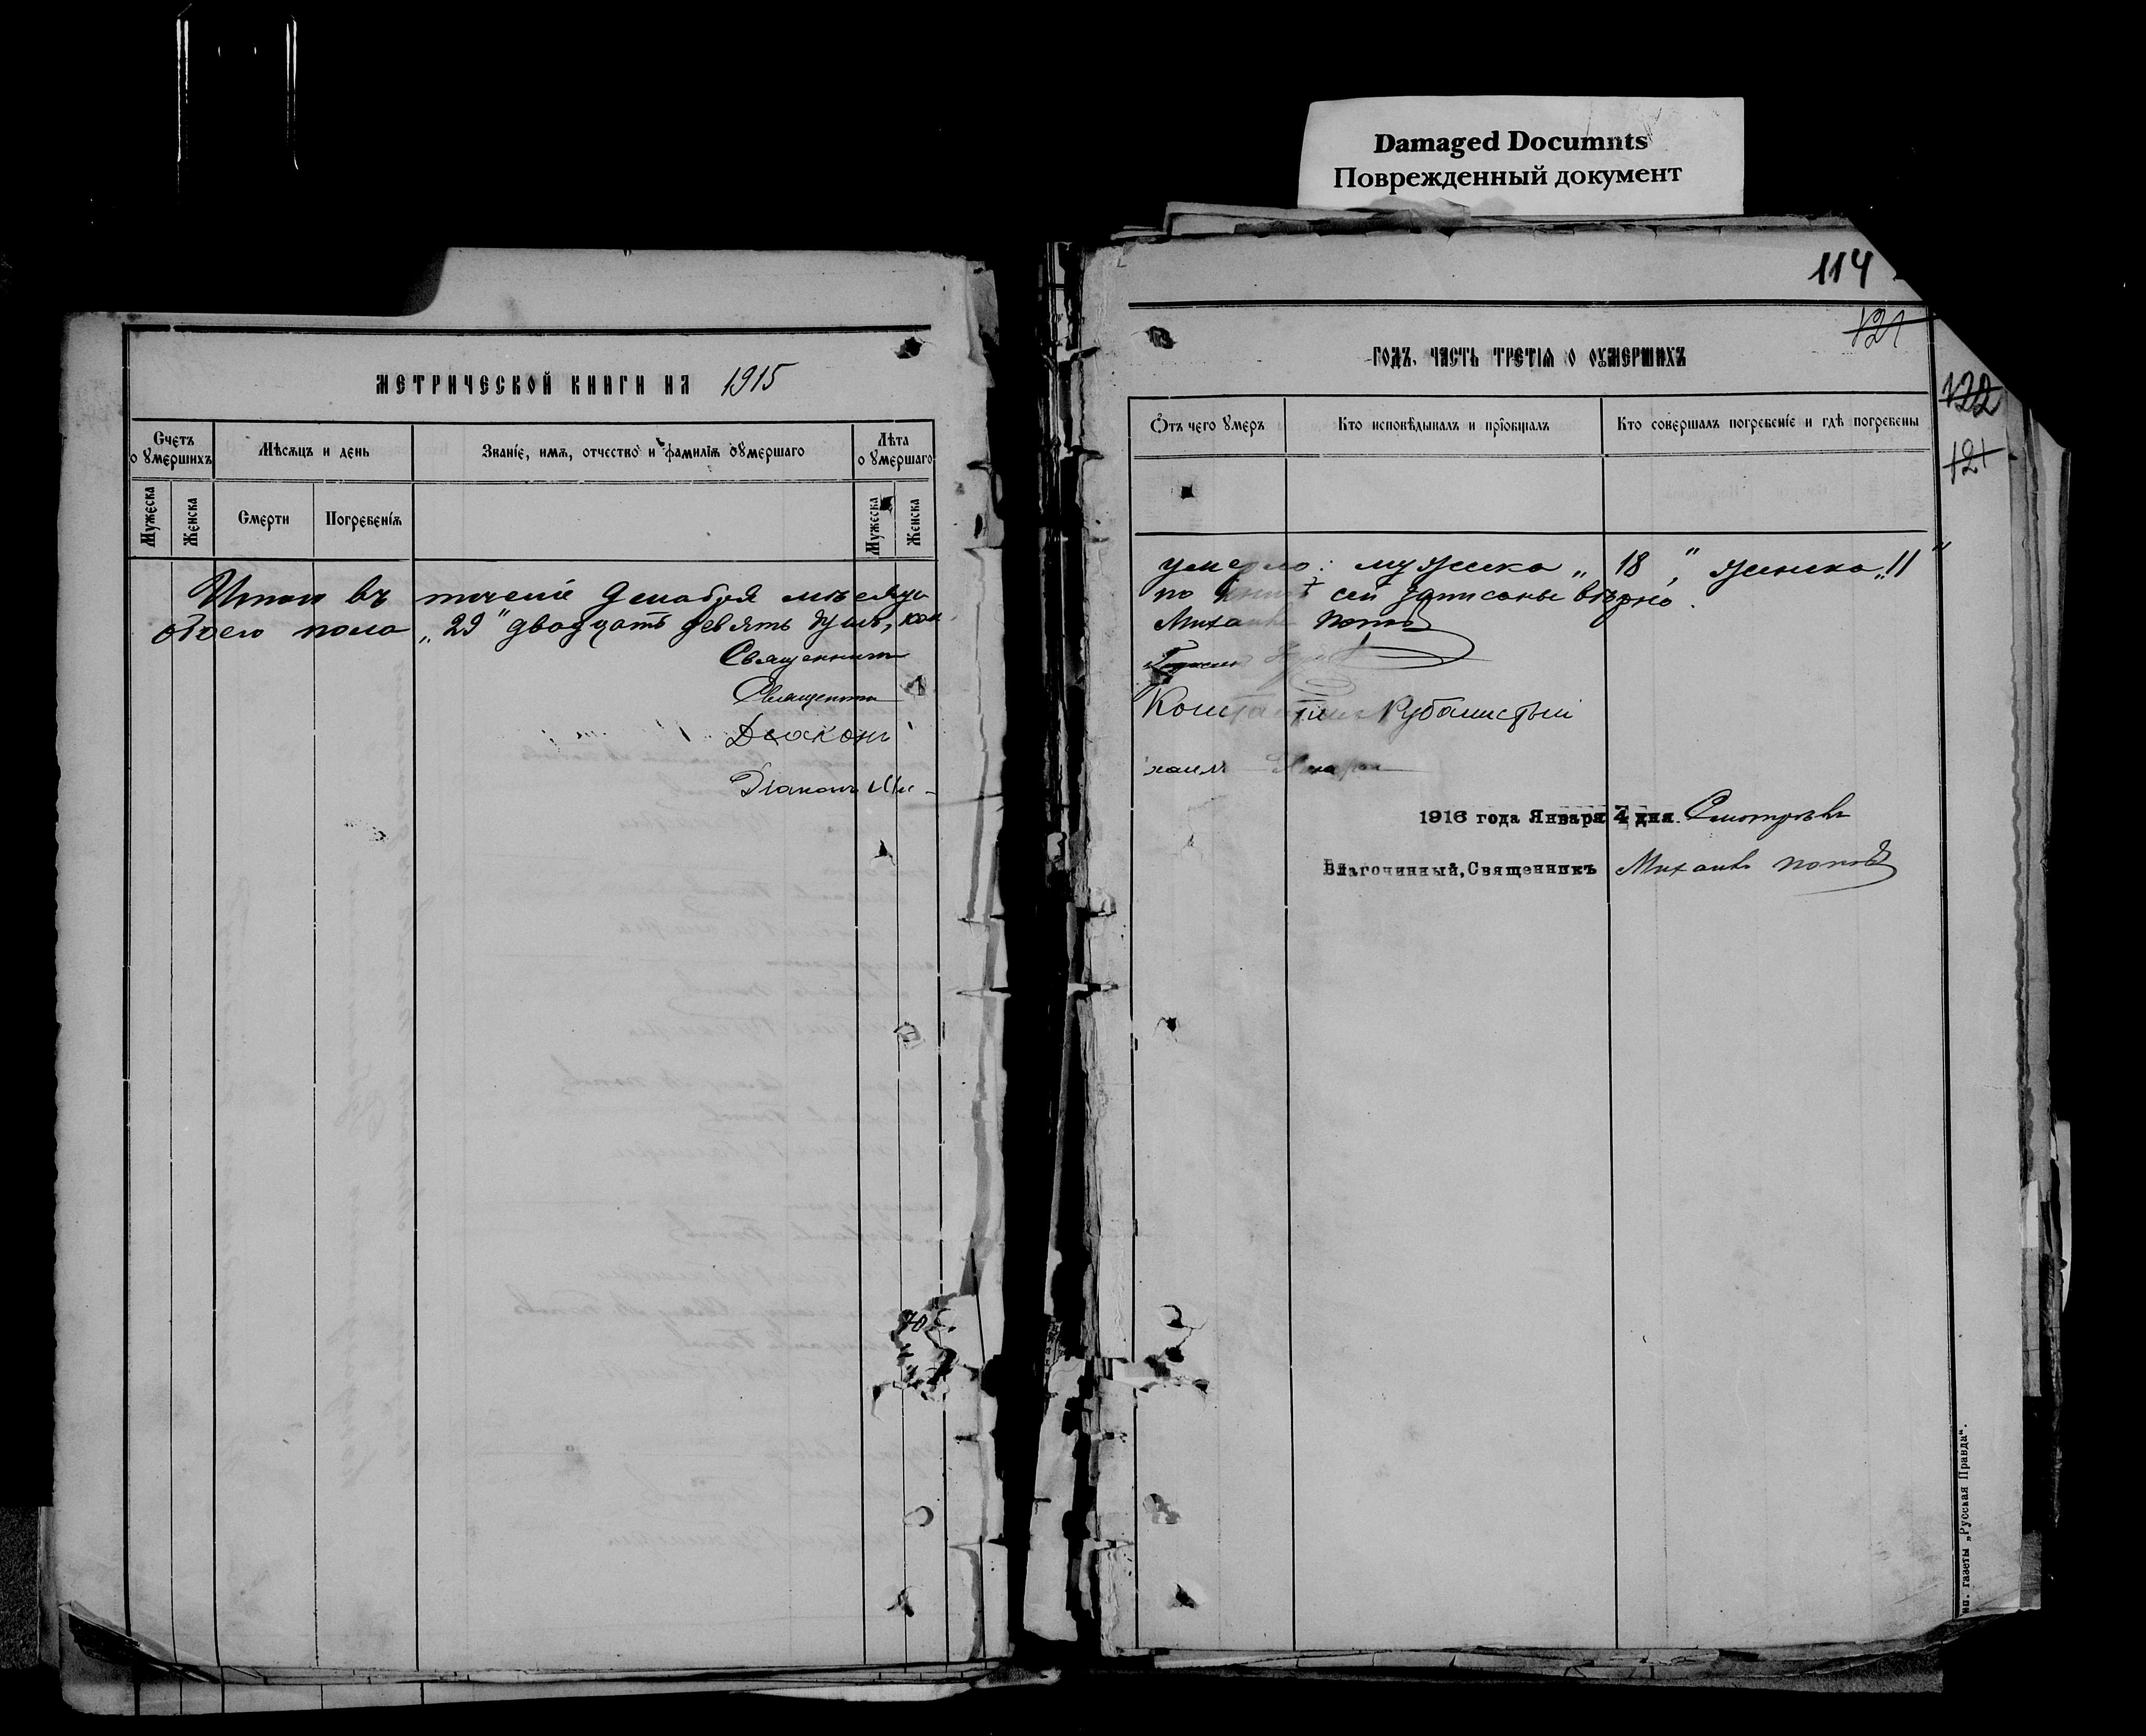 Damaged Documnts
Поврежденный документ
114
121
122
121
МЕТРИЧЕСКОЙ КНИГИ НА 1915
ГОДЪ, ЧАСТЬ ТРЕТІЯ О ОУМЕРШИХЪ
Счетъ о умершихъ
Мѣсяцъ и день
Званіе, имя, отчество и фамилія оумершаго
Лѣта о умершаго
Мужеска
Женска
Смерти
Погребенія
Мужеска
Женска
Отъ чего умеръ
Кто исповѣдывалъ и пріобщалъ
Кто совершалъ погребеніе и гдѣ погребены
Итого въ теченіе Декабря мѣсяца умерло: мужеска „18", женска „11"
обоего пола „29" двадцать девять душъ, кои по книгѣ сей записаны вѣрно.
Священникъ Михаилъ Поповъ
Священникъ
Діаконъ Константинъ
Діаконъ Михаилъ
1916 года Января 4 дня. Смотрѣлъ
Благочинный, Священникъ Михаилъ Поповъ
газеты „Русская Правда“.